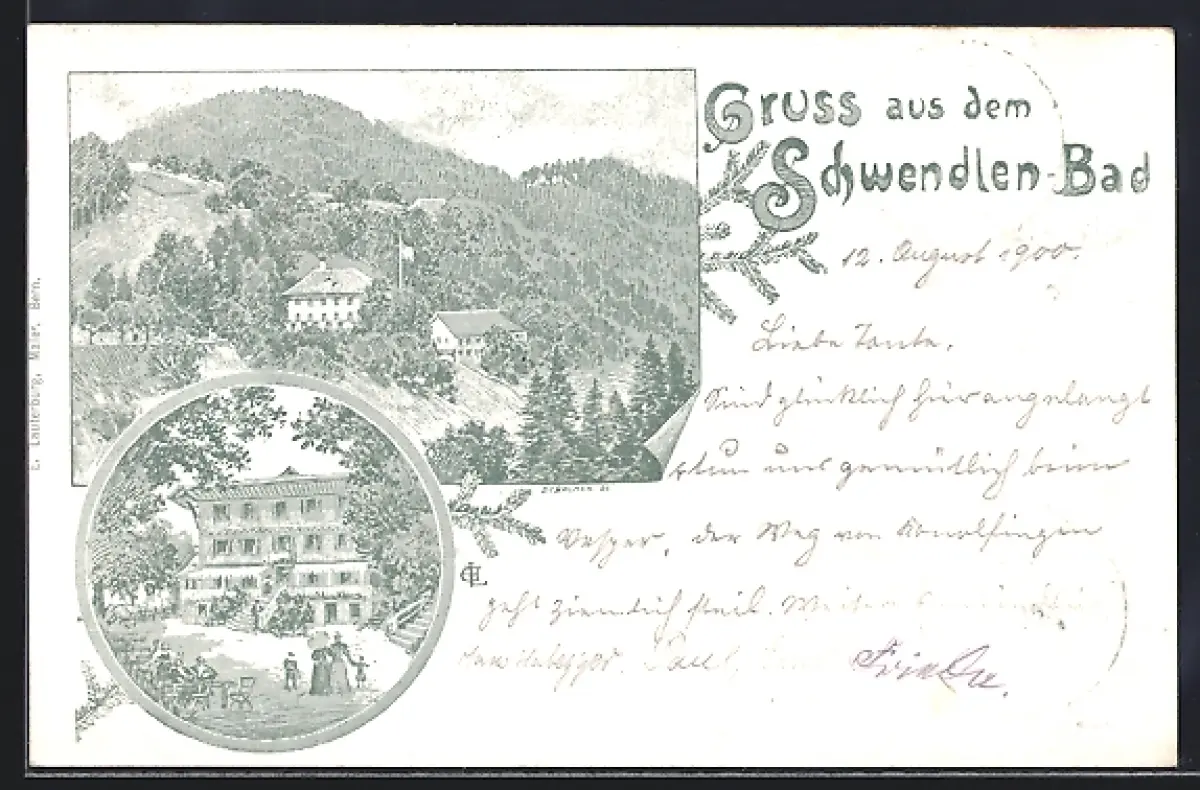 Gruss aus dem
Schwendlen-Bad
12. August 1900.
Liebe Tante.
Sind glücklich hier angelangt
tun uns gemütlich beim
Vesper, der Weg von Konolfingen
geht ziemlich steil.
Frieda.
E. Lauterburg, Maler, Bern.